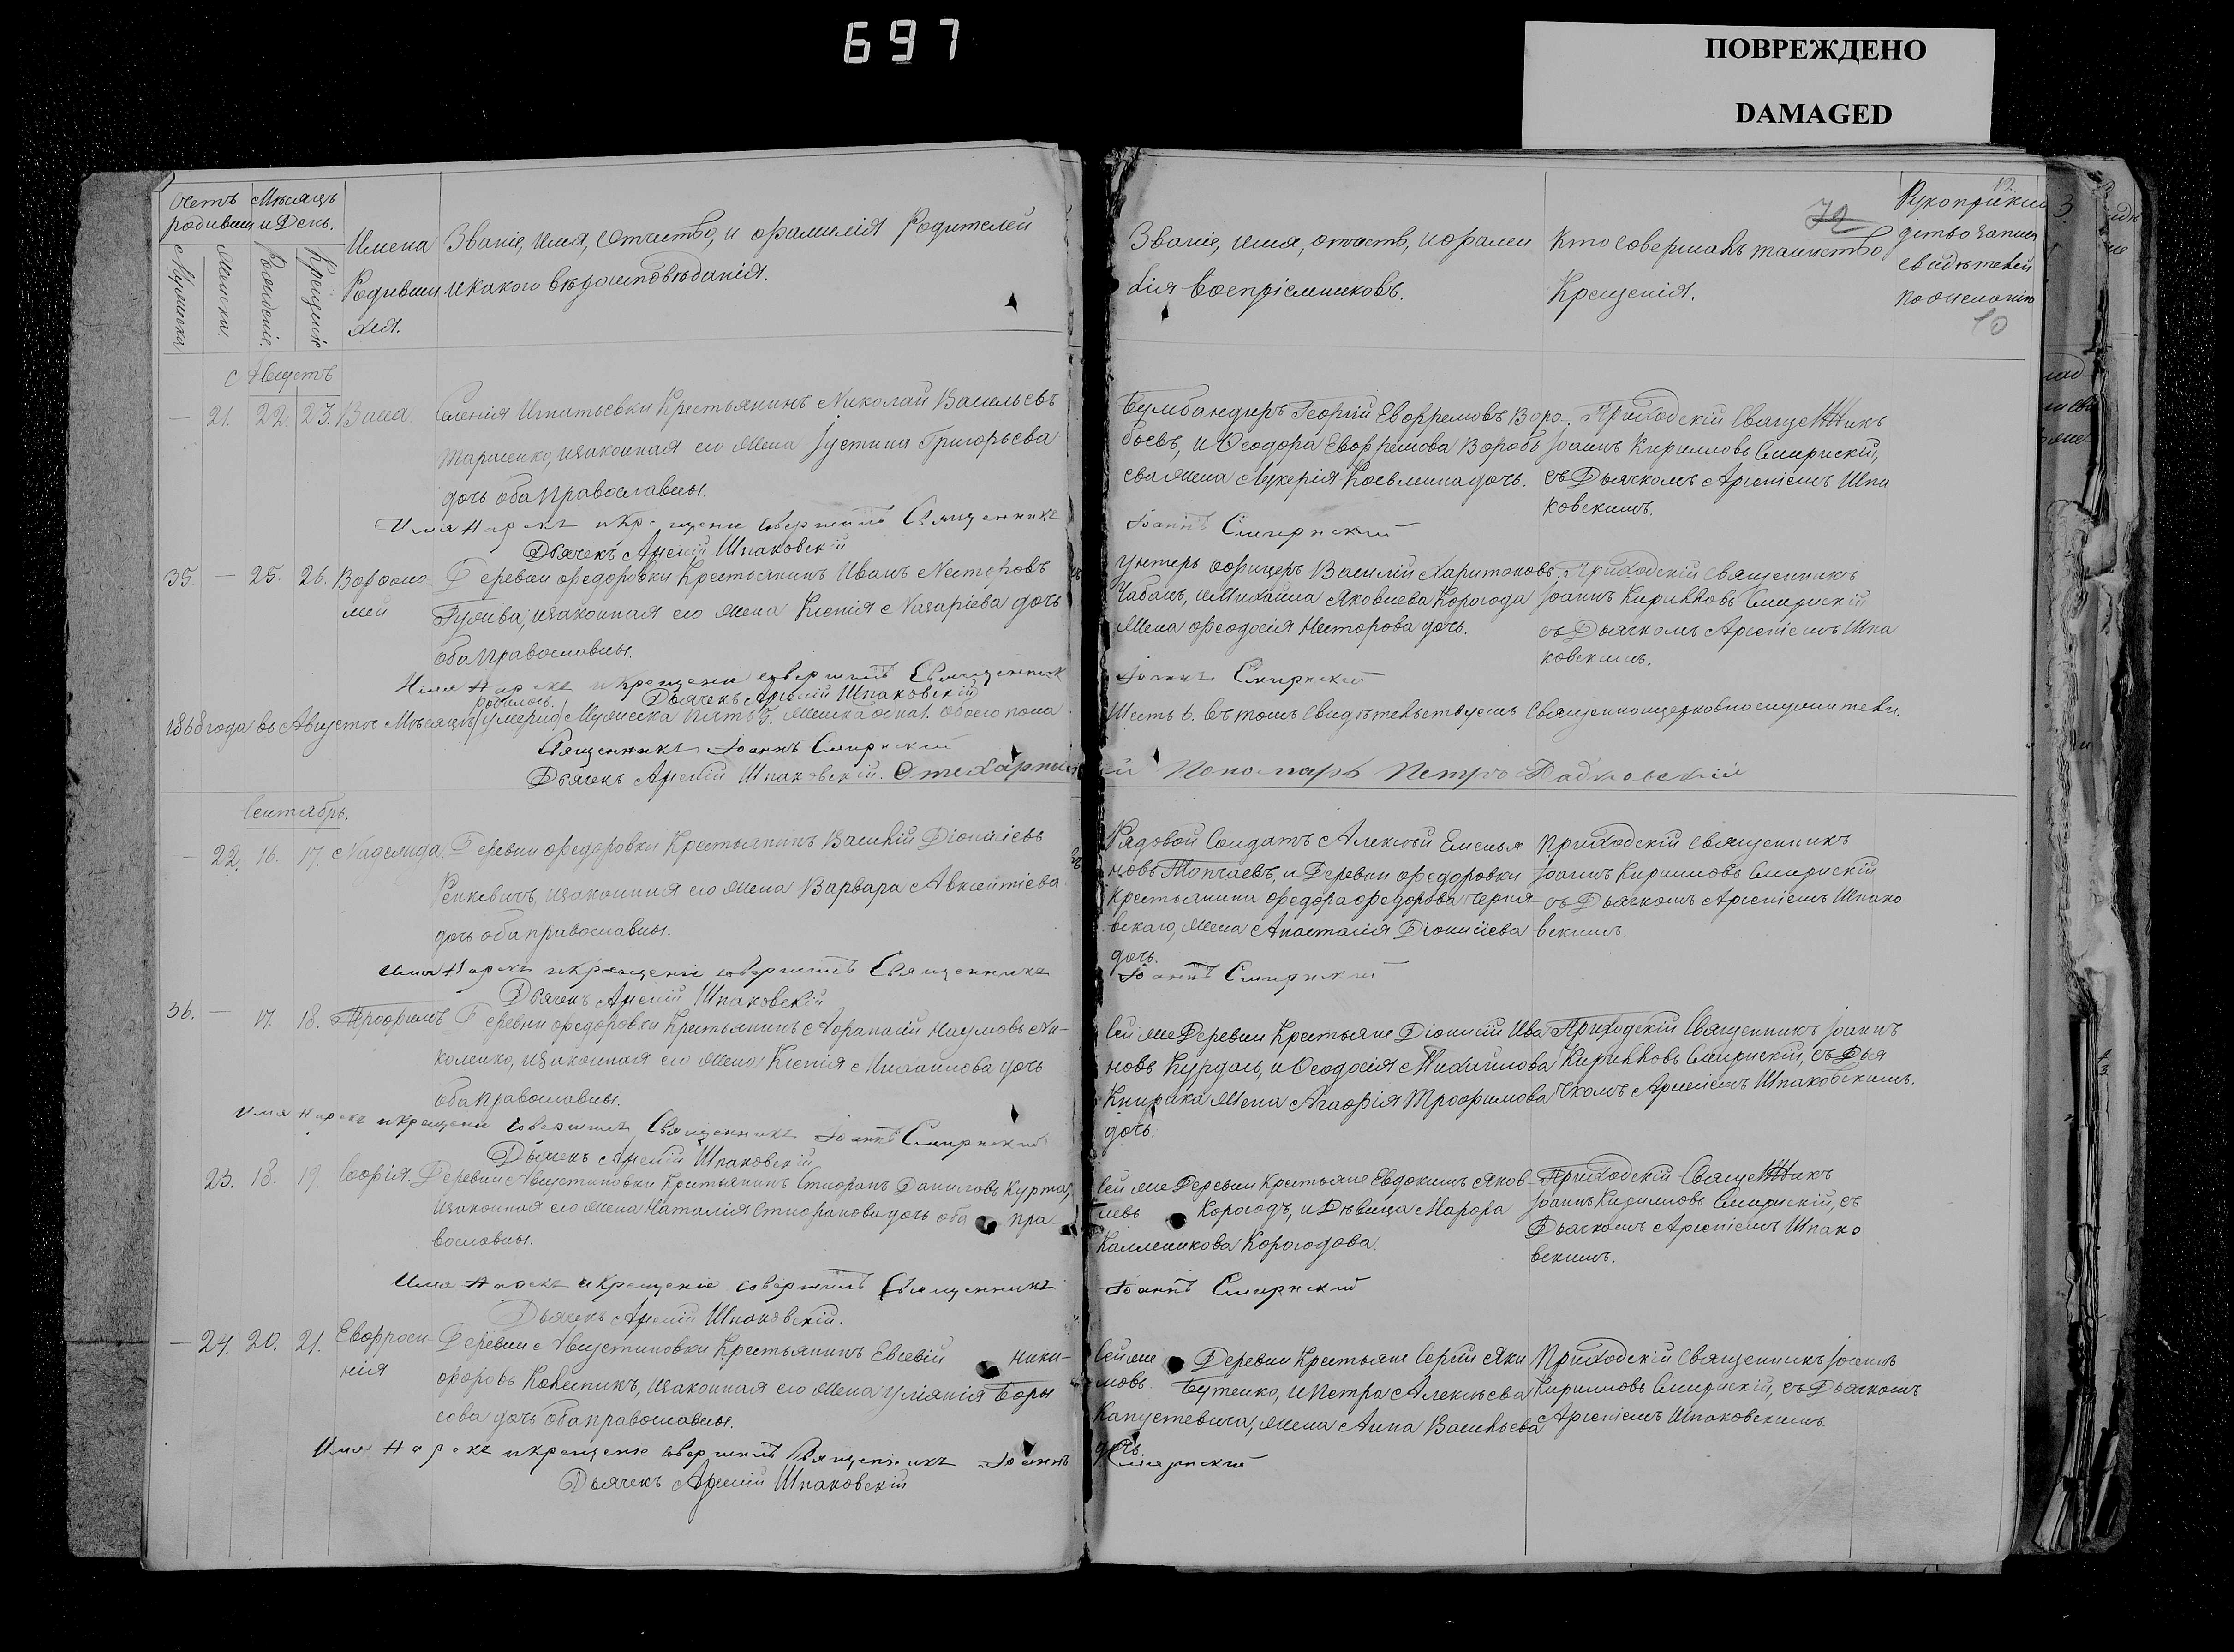 697
ПОВРЕЖДЕНО
DAMAGED
Счетъ
родивши
Мѣсяцъ
и День.
Мужеска
Женска.
Рожденіе.
Крещеніе
Имена
Родивши
хся.
Званіе, имя, Отчество, и фамилія Родителей
и какого вѣроисповѣданія.
Августъ
— 21. 22. 23. Васса.
Селенія Игнатьевки Крестьянинъ Николай Васильевъ
Тараненко, изаконная его жена Іустина Григорьева
дочь оба православны.
Имя нарекъ и крещеніе совершилъ Священникъ
Дьячекъ Арсеній Шпаковскій
35. — 25. 26. Варфоло-
мей
Деревни Федоровки Крестьянинъ Иванъ Несторовъ
изаконная его жена Ксенія Назаріева дочь
оба православны.
Имя нарекъ и крещеніе совершилъ Священникъ
Дьячекъ Арсеній Шпаковскій
1868 года въ Августѣ Мѣсяцѣ родилось Мужеска пять 5. женска одна 1. обоего пола
Священникъ Іоаннъ Смирнскій
Дьячекъ Арсеній Шпаковскій. Стихарный
Сентябрь.
— 22. 16. 17. Надежда.
Деревни Федоровки Крестьянинъ Василій Діонисіевъ
Ренкевичъ, изаконная его жена Варвара Авксентіева
дочь оба православны.
Имя нарекъ и крещеніе совершилъ Священникъ
Дьячекъ Арсеній Шпаковскій
36. — 17. 18. Трофимъ
Деревни Федоровки Крестьянинъ Афанасій Наумовъ Ни-
коленко, изаконная его жена Ксенія Михаилова дочь
оба православны.
Имя нарекъ и крещеніе совершилъ Священникъ Іоаннъ Смирнскій
Дьячекъ Арсеній Шпаковскій
23. 18. 19. Софія.
Деревни Августиновки Крестьянинъ Стефанъ Даниловъ
изаконная его жена Наталія Стефанова дочь оба пра-
вославны.
Имя нарекъ и крещеніе совершилъ Священникъ
Дьячекъ Арсеній Шпаковскій.
— 24. 20. 21. Евфроси-
нія
Деревни Августиновки Крестьянинъ Евсевій Ники-
форовъ Колесникъ, изаконная его жена Уліянія Боры
сова дочь оба православны.
Имя нарекъ и крещеніе совершилъ Священникъ Іоаннъ
Дьячекъ Арсеній Шпаковскій
Званіе, имя, отчеств, и фамил
лія Воспріемниковъ.
Кто совершалъ таинство
Крещенія.
Рукоприкла
дство записи
свидѣтелей
по желанію
10
Бумбандиръ Георгій Евфремовъ Воро-
боевъ, и Ѳеодора Евфремова Воробь
ева жена Лукерія дочь.
Приходскій Священникъ
Іоаннъ Кирилловъ Смирнскій,
съ Дьячкомъ Арсеніемъ Шпа
ковскимъ.
Іоаннъ Смирнскій
Унтеръ офицеръ Василій Харитоновъ
Чабанъ, и Михаила Яковлева Корогода
жена Феодосія Несторова дочь.
Приходскій Священникъ
Іоаннъ Кирилловъ Смирнскій
съ Дьячкомъ Арсеніемъ Шпа
ковскимъ.
Іоаннъ Смирнскій
Шесть 6. Въ томъ свидѣтельствуемъ Священноицерковнослужители.
й Пономарь Петръ
Рядовой Солдатъ Алексѣй Емелья
новъ Топчаевъ, и Деревни Федоровки
Крестьянина Федора Федорова Черня
вскаго, жена Анастасія Діонисіева
дочь.
Приходскій Священникъ
Іоаннъ Кирилловъ Смирнскій
съ Дьячкомъ Арсеніемъ Шпако
вскимъ.
Іоаннъ Смирнскій
Сей же Деревни Крестьяне Діонисій Ива
новъ Курдасъ, и Ѳеодосія Михаилова
Книрика жена Агафія Трофимова
дочь.
Приходскій Священникъ Іоаннъ
Кирилловъ Смирнскій, съ Дья
чкомъ Арсеніемъ Шпаковскимъ.
Сей же Деревни Крестьяне Евдокимъ Яков-
левъ Корогодъ, и Дѣвица Марфа
Каленикова Корогодова.
Приходскій Священникъ
Іоаннъ Кирилловъ Смирнскій, съ
Дьячкомъ Арсеніемъ Шпако
вскимъ.
Іоаннъ Смирнскій
Сей же Деревни Крестьяне Сергій Яки
мовъ Бутенко, и Петра Алексѣева
Капустевича, жена Анна Васильева
дочь.
Приходскій Священникъ Іоаннъ
Кирилловъ Смирнскій, съ Дьячкомъ
Арсеніемъ Шпаковскимъ.
Смирнскій